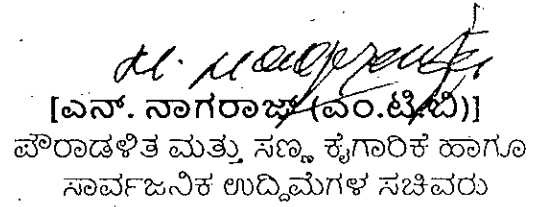 [ಎನ್. ನಾಗರಾಜ್ (ಎಂ.ಟಿ.ಬಿ)]
ಪೌರಾಡಳಿತ ಮತ್ತು ಸಣ್ಣ ಕೈಗಾರಿಕೆ ಹಾಗೂ
ಸಾರ್ವಜನಿಕ ಉದ್ದಿಮೆಗಳ ಸಚಿವರು